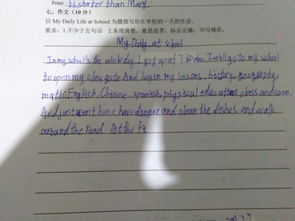 Peter is shorter than Mary.
七、作文（10分）
以 My Daily Life at School 为题描写你在学校的一天的生活。
要求：1.不少于五句话 2.条理清楚，意思连贯，标点正确，书写规范。
My Daily at school
In my school's the whole day. I got up at 7:00 Am. I will go to my school
to open my class gate And began my lessons, history, geography
math English, Chinese, spanish, physical education class and soon.
And just went home have danner and clean the dishes and walk
around the road. At the